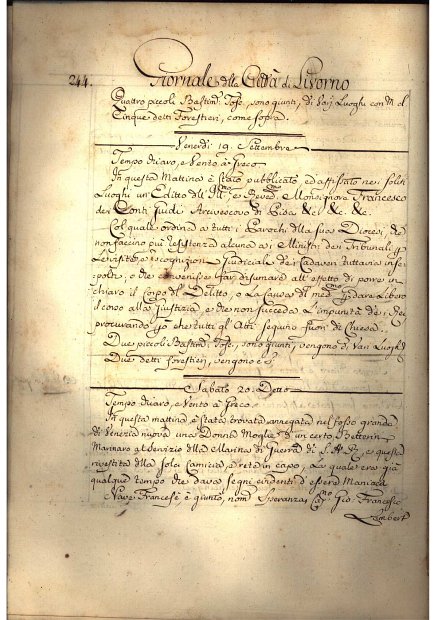 244. Giornale della Città di Livorno
Quattro piccoli Bastim.ti Tosc. sono giunti, di Varj Luoghi con M. el
Cinque detti Forestieri, come sopra.
Venerdì 19. Settembre
Tempo chiaro, e Vento à Greco
In questa Mattina è stato pubblicato, ed affissato nei soliti
Luoghi un Editto dell' Ill.mo e Rever.mo Monsignore Francesco
dei Conti Guidi Arcivescovo di Pisa &c. &c. &c.
Col quale ordina a tutti i Parochi della sua Diocesi, che
non faccino più resistenza alcuna ai Ministri dei Tribunali p
Le visite, e recognizioni Giudiciali dei Cadaveri tuttavia inse-
polti, o che convenisse far disumare all' effetto di porre in
chiaro il Corpo del Delitto, o La Causa di med.mo per dare Libero
il corso alla Giustizia, e che non succeda L'impunità de' Rei
procurando che tutti gl' Atti seguino fuori di Chiesa.
Due piccoli Bastim.ti Tosc. sono giunti, vengono di Varj Luoghi
Due detti forestieri, vengono
Sabato 20. Detto
Tempo chiaro, e Vento à Greco
In questa mattina è stata trovata annegata nel fosso grande
di Venezia nuova una Donna Moglie d'un certo Betterin
Marinaro al Servizio della Marina di Guerra di S. A. R. e questa
rivestita della sola Camicia, e rete in capo, La quale era già
qualche tempo che dava segni evidenti d' essere Maniaca
Nave Francese è giunta, nom. Speranza Cap.no Gio. Francesco
Lambert